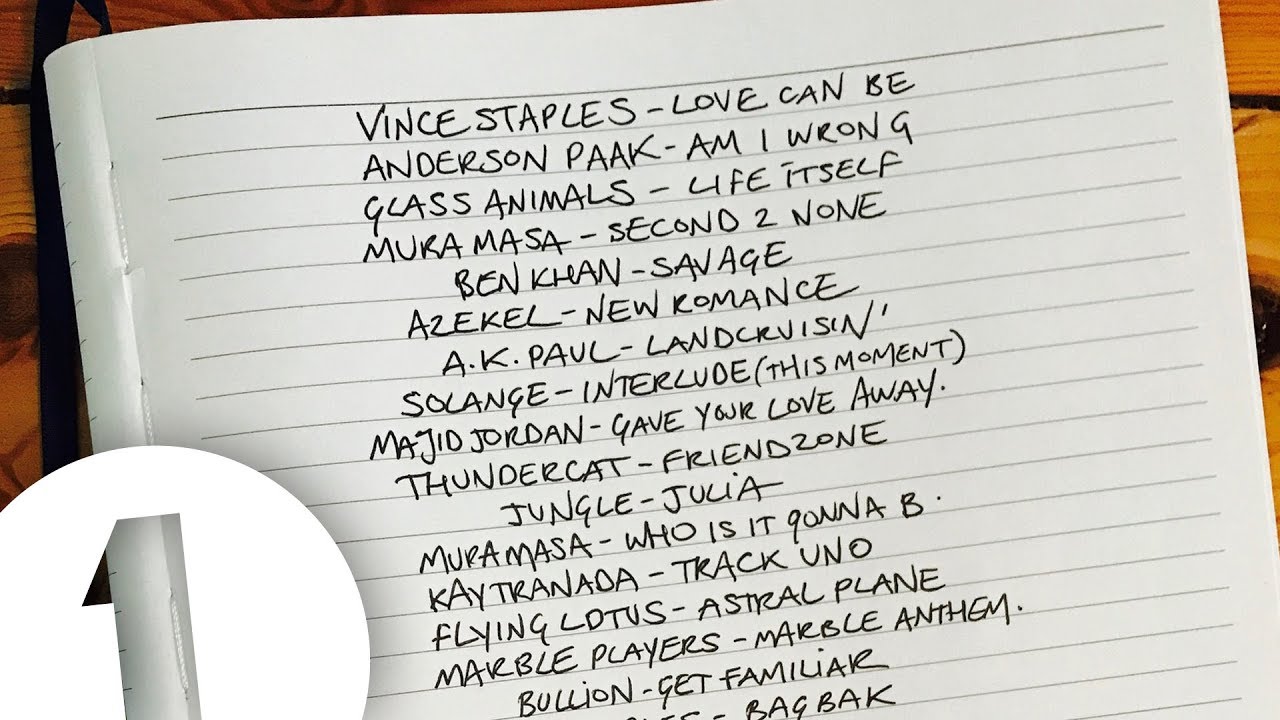 VINCE STAPLES - LOVE CAN BE
ANDERSON PAAK - AM I WRONG
GLASS ANIMALS - LIFE ITSELF
MURA MASA - SECOND 2 NONE
BEN KHAN - SAVAGE
AZEKEL - NEW ROMANCE
A.K. PAUL - LANDCRUISIN'
SOLANGE - INTERLUDE (THIS MOMENT)
MAJID JORDAN - GAVE YOUR LOVE AWAY.
THUNDERCAT - FRIENDZONE
JUNGLE - JULIA
MURA MASA - WHO IS IT GONNA B.
KAYTRANADA - TRACK UNO
FLYING LOTUS - ASTRAL PLANE
MARBLE PLAYERS - MARBLE ANTHEM.
BULLION - GET FAMILIAR
- BAGBAK
1